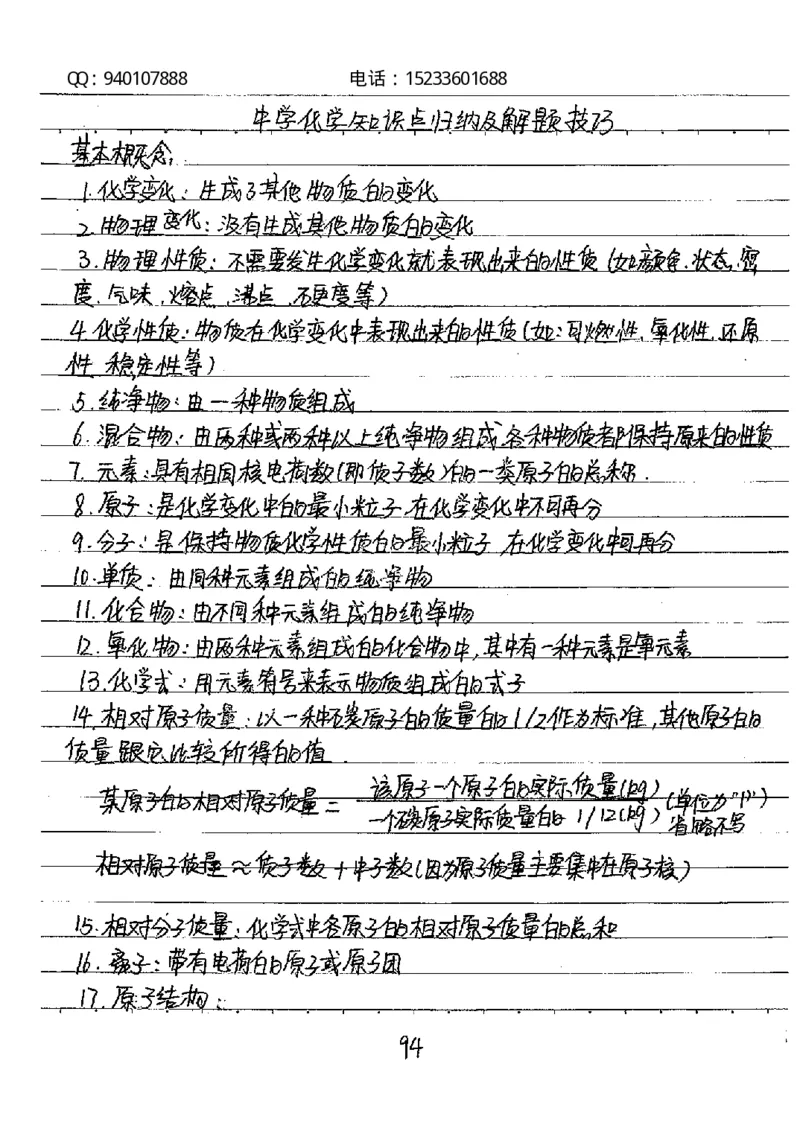 QQ：940107888 电话：15233601688
中学化学知识点归纳及解题技巧
基本概念：
1.化学变化：生成了其他物质的变化
2.物理变化：没有生成其他物质的变化
3.物理性质：不需要发生化学变化就表现出来的性质（如：颜色、状态、密
度、气味、熔点、沸点、硬度等）
4.化学性质：物质在化学变化中表现出来的性质（如：可燃性、氧化性、还原
性、稳定性等）
5.纯净物：由一种物质组成
6.混合物：由两种或两种以上纯净物组成,各种物质都保持原来的性质
7.元素：具有相同核电荷数（即质子数）的一类原子的总称.
8.原子：是化学变化中的最小粒子,在化学变化中不可再分
9.分子：是保持物质化学性质的最小粒子,在化学变化中可再分
10.单质：由同种元素组成的纯净物
11.化合物：由不同种元素组成的纯净物
12.氧化物：由两种元素组成的化合物中,其中有一种元素是氧元素
13.化学式：用元素符号来表示物质组成的式子
14.相对原子质量：以一种碳原子的质量的1/12作为标准,其他原子的
质量跟它比较所得的值
某原子的相对原子质量＝ 该原子一个原子的实际质量(kg) / 一个碳原子实际质量的1/12(kg) （单位为“1”）省略不写
相对原子质量≈质子数＋中子数（因为原子质量主要集中在原子核）
15.相对分子质量：化学式中各原子的相对原子质量的总和
16.离子：带有电荷的原子或原子团
17.原子结构：
94